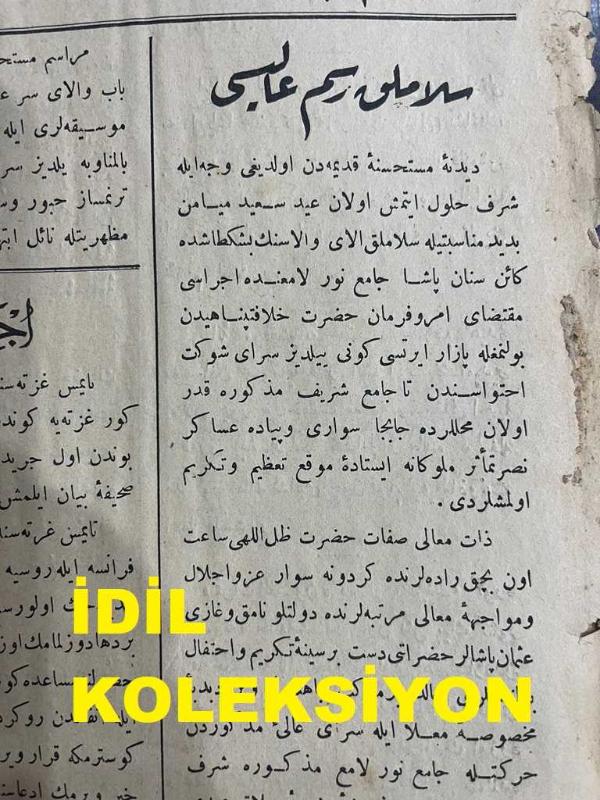 سلاملق رسم عالیسی
دیدنهٔ مستحسنهٔ قدیمه‌دن اولدیغی وجه‌ایله
شرف حلول ایتمش اولان عید سعید میامن
بدید مناسبتیله سلاملق الای والاسنك بشكطاشده
كائن سنان پاشا جامع نور لامعنده اجراسی
مقتضای امروفرمان حضرت خلافتپناهیدن
بولنمغله پازار ایرتسی كونی ییلدیز سرای شوكت
احتواسندن تا جامع شریف مذكوره قدر
اولان محللرده جابجا سواری وپیاده عساكر
نصرتمأثر ملوكانه ایستادهٔ موقع تعظیم وتكریم
اولمشلردی .
ذات معالی صفات حضرت ظل‌اللهی ساعت
اون بچق راده‌لرنده كردونه سوار عزواجلال
ومواجههٔ معالی مرتبه‌لرنده دولتلو نامق وغازی
عثمان پاشالر حضراتی دست بر سینهٔ تكریم واحتفال
مخصوصه معلا ایله سرای عالی
حركتله جامع نور لامع مذكوره شرف
مراسم
باب والای سر
موسیقه‌لری ایله
بالمناوبه یلدیز سر
ترنمساز حبور
مظهریتله نائل
تایمس غزته‌سن
كور غزته‌یه كوند
بوندن اول جرید
صحیفهٔ بیان ایلمش
تایمس غزته‌سن
فرانسه ایله روسیه
كوسترمكه قرار
İDİL
KOLEKSİYON